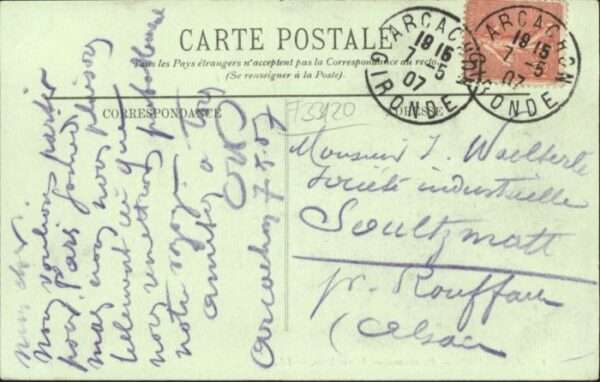 CARTE POSTALE
Tous les Pays étrangers n'acceptent pas la Correspondance au recto
(Se renseigner à la Poste).
CORRESPONDANCE
ADRESSE
ARCACHON
18 15
7 - 5
07
GIRONDE
ARCACHON
18 15
7 - 5
07
GIRONDE
75920
Nous voulions partir
pour Paris
mais nous nous plaisons
tellement ici que
nous remettrons
notre voyage.
Amitiés à tous
Arcachon 7.5.07
Monsieur J. Waelterlé
Société industrielle
Soultzmatt
pr. Rouffach
(Alsace